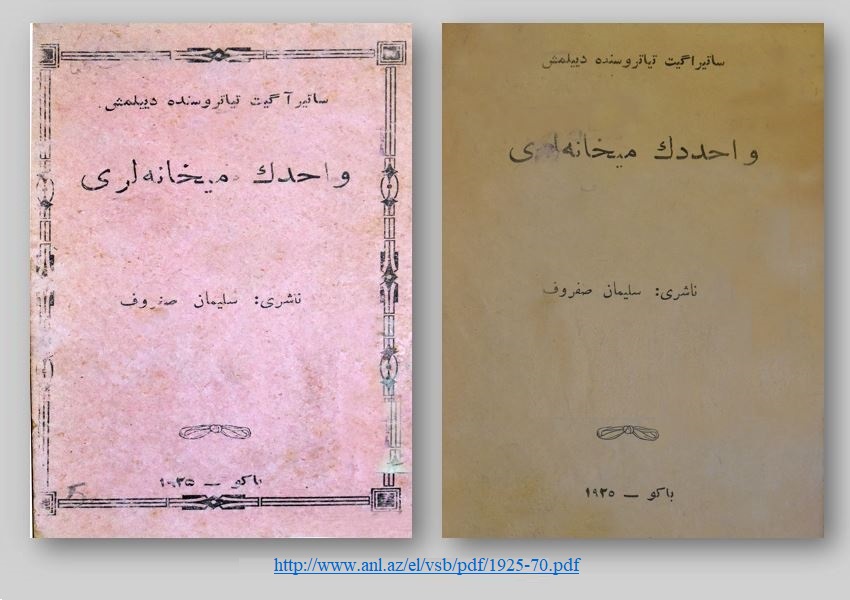 ساتیر آگیت تیاتروسنده دییلمش.
واحدك میخانه‌لری
ناشری: سلیمان صفروف
باکو — ۱۹۲۵
ساتیراگیت تیاتروسنده دییلمش
واحددك میخانه‌لری
ناشری: سلیمان صفروف
باکو — ۱۹۲۵
http://www.anl.az/el/vsb/pdf/1925-70.pdf